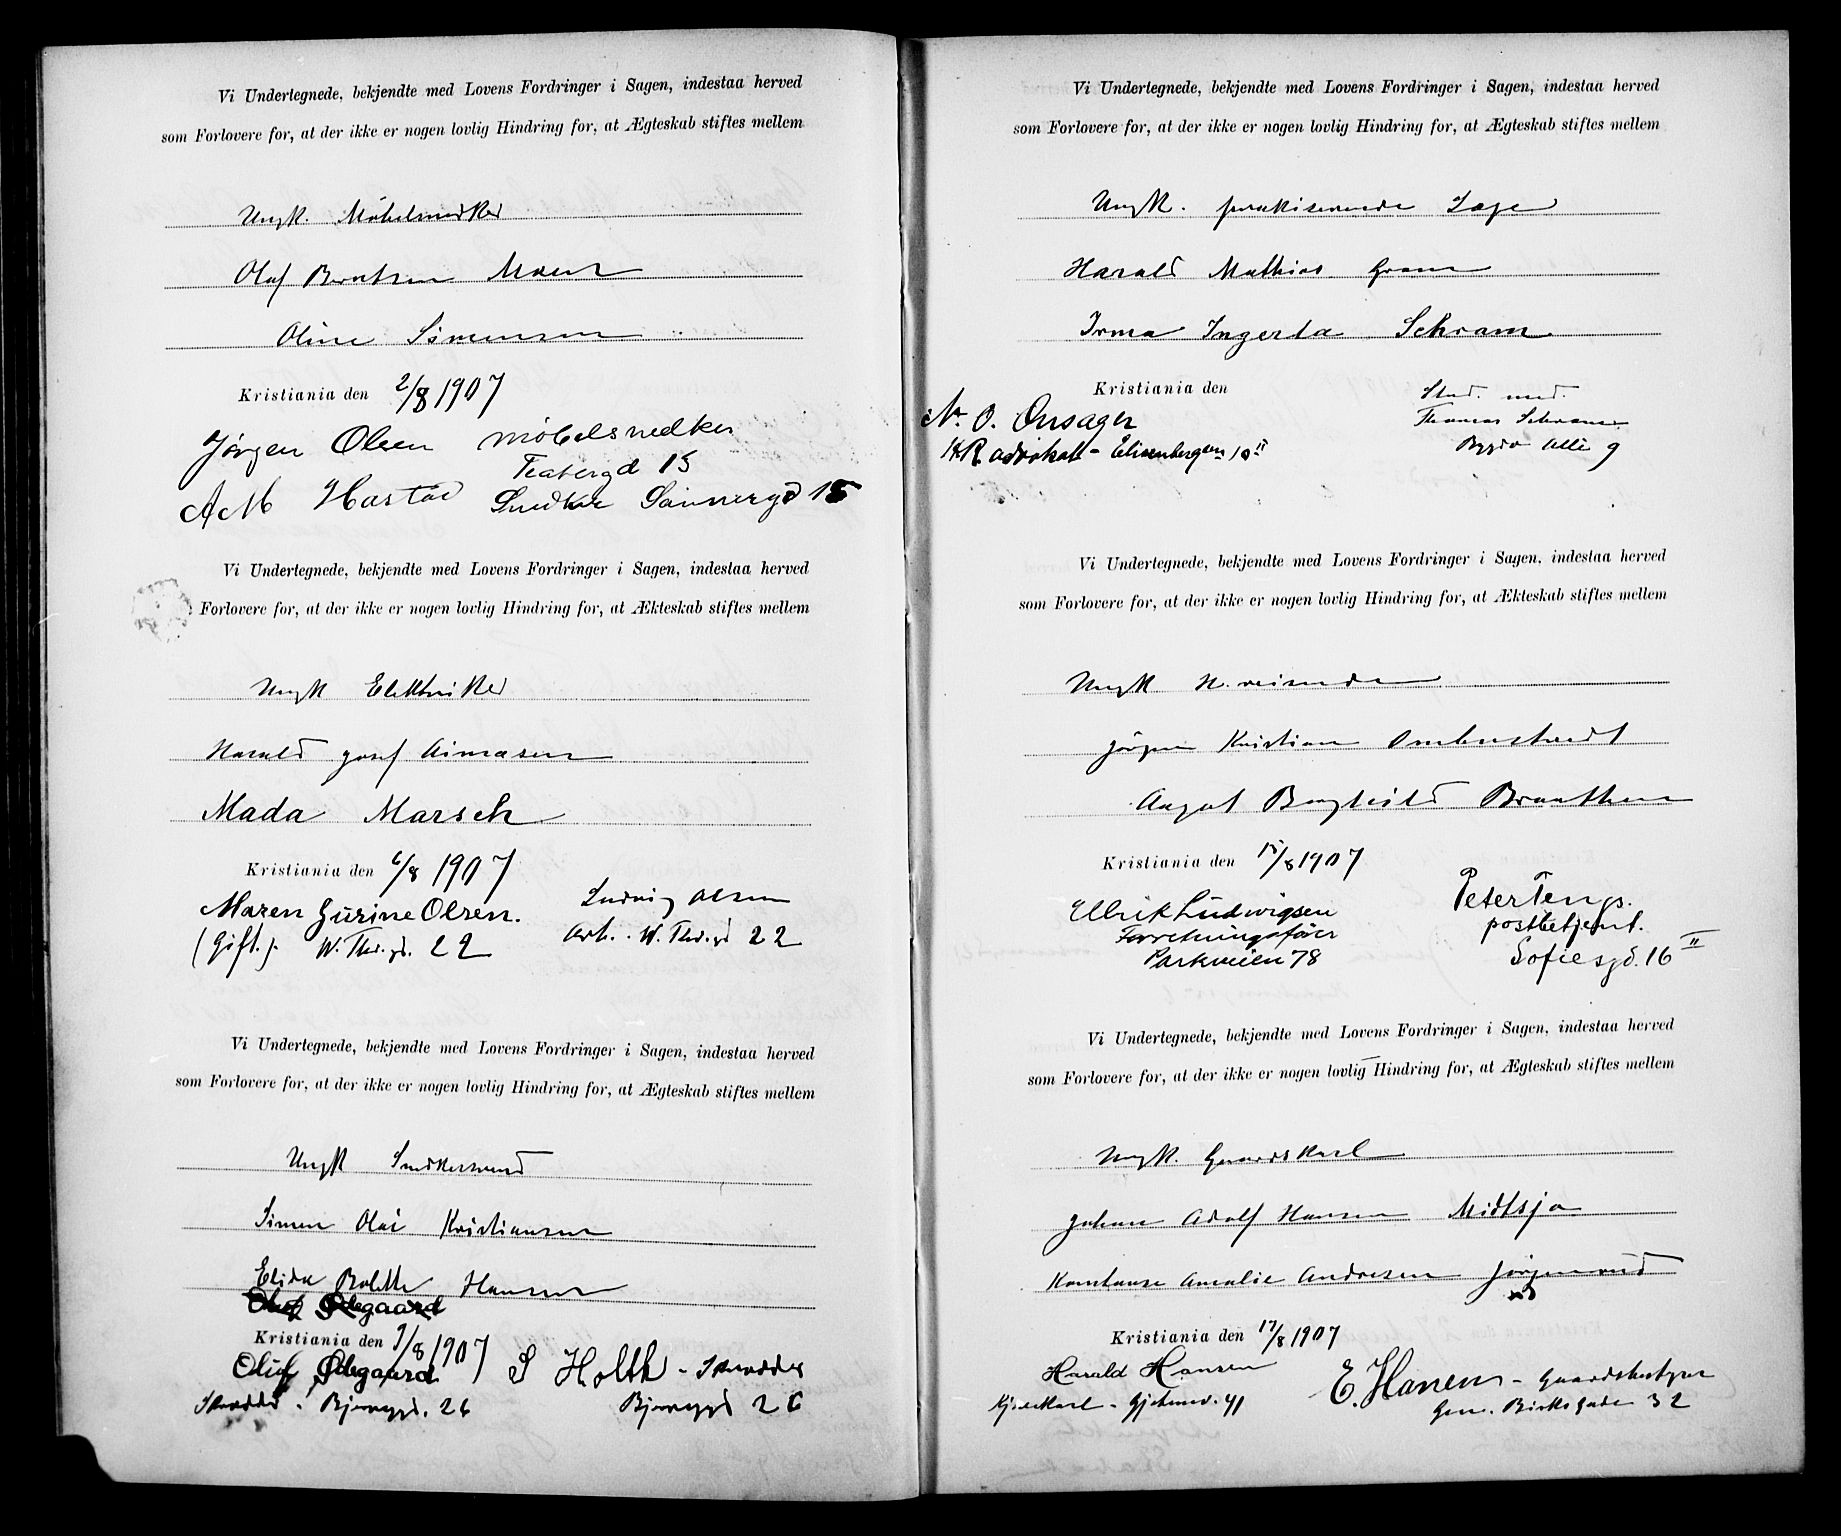 Vi Undertegnede, bekjendte med Lovens Fordringer i Sagen, indestaa herved
som Forlovere for, at der ikke er nogen lovlig Hindring for, at Ægteskab stiftes mellem
Ungk. Möbelsnedker
Olaf Berntsen Moen
Oline Simensen
Kristiania den 2/8 1907
Jörgen Olsen möbelsnedker
Teatergd 15
A M Hastad Snedker Sannergd 15
Vi Undertegnede, bekjendte med Lovens Fordringer i Sagen, indestaa herved
Forlovere for, at der ikke er nogen lovlig Hindring for, at Ækteskab stiftes mellem
Ungk Elektriker
Harald Josef Aimasen
Mada Marsch
Kristiania den 6/8 1907
Maren Gurine Olsen.
(Gift.). W. Thr. gd. 22
Ludvig Olsen
Arb. W. Thr. gd 22
Vi Undertegnede, bekjendte med Lovens Fordringer i Sagen, indestaa herved
som Forlovere for, at der ikke er nogen lovlig Hindring for, at Ægteskab stiftes mellem
Ungk Snedkersvend
Simen Olai Kristiansen
Elida Bolette Hansen
Oluf Ødegaard
Kristiania den 9/8 1907
Oluf Ødegaard
Skrædder Bjerregd. 26
S Holth - Skrædder
Bjerregd 26
Vi Undertegnede, bekjendte med Lovens Fordringer i Sagen, indestaa herved
som Forlovere for, at der ikke er nogen lovlig Hindring for, at Ægteskab stiftes mellem
Ungk. praktiserende Læge
Harald Mathias Gram
Irma Ingerta Schram
Kristiania den
N. O. Onsager
H.R. advokat - Elisenbergvn 10 II
Stud. med.
Thomas Schram
Bygdø Allé 9
Vi Undertegnede, bekjendte med Lovens Fordringer i Sagen, indestaa herved
som Forlovere for, at der ikke er nogen lovlig Hindring for, at Ækteskab stiftes mellem
Ungk H. reisende
Jörgen Kristian Ombustvedt
Aagot Bergliot Braathen
Kristiania den 15/8 1907
Ellrik Ludwigsen
Forretningsfører
Parkveien 78
Peter Tengs.
postbetjent.
Sofiesgd. 16 II
Vi Undertegnede, bekjendte med Lovens Fordringer i Sagen, indestaa herved
som Forlovere for, at der ikke er nogen lovlig Hindring for, at Ægteskab stiftes mellem
Ungk. Gaardskarl
Johan Adolf Hansen Midtsjø
Konstanse Amalie Andresen Jörgensrud
Kristiania den 17/8 1907
Harald Hansen
Kjørekarl - 41
E. Hansen - Gaardsbestyrer
Gen. Birks Gade 32